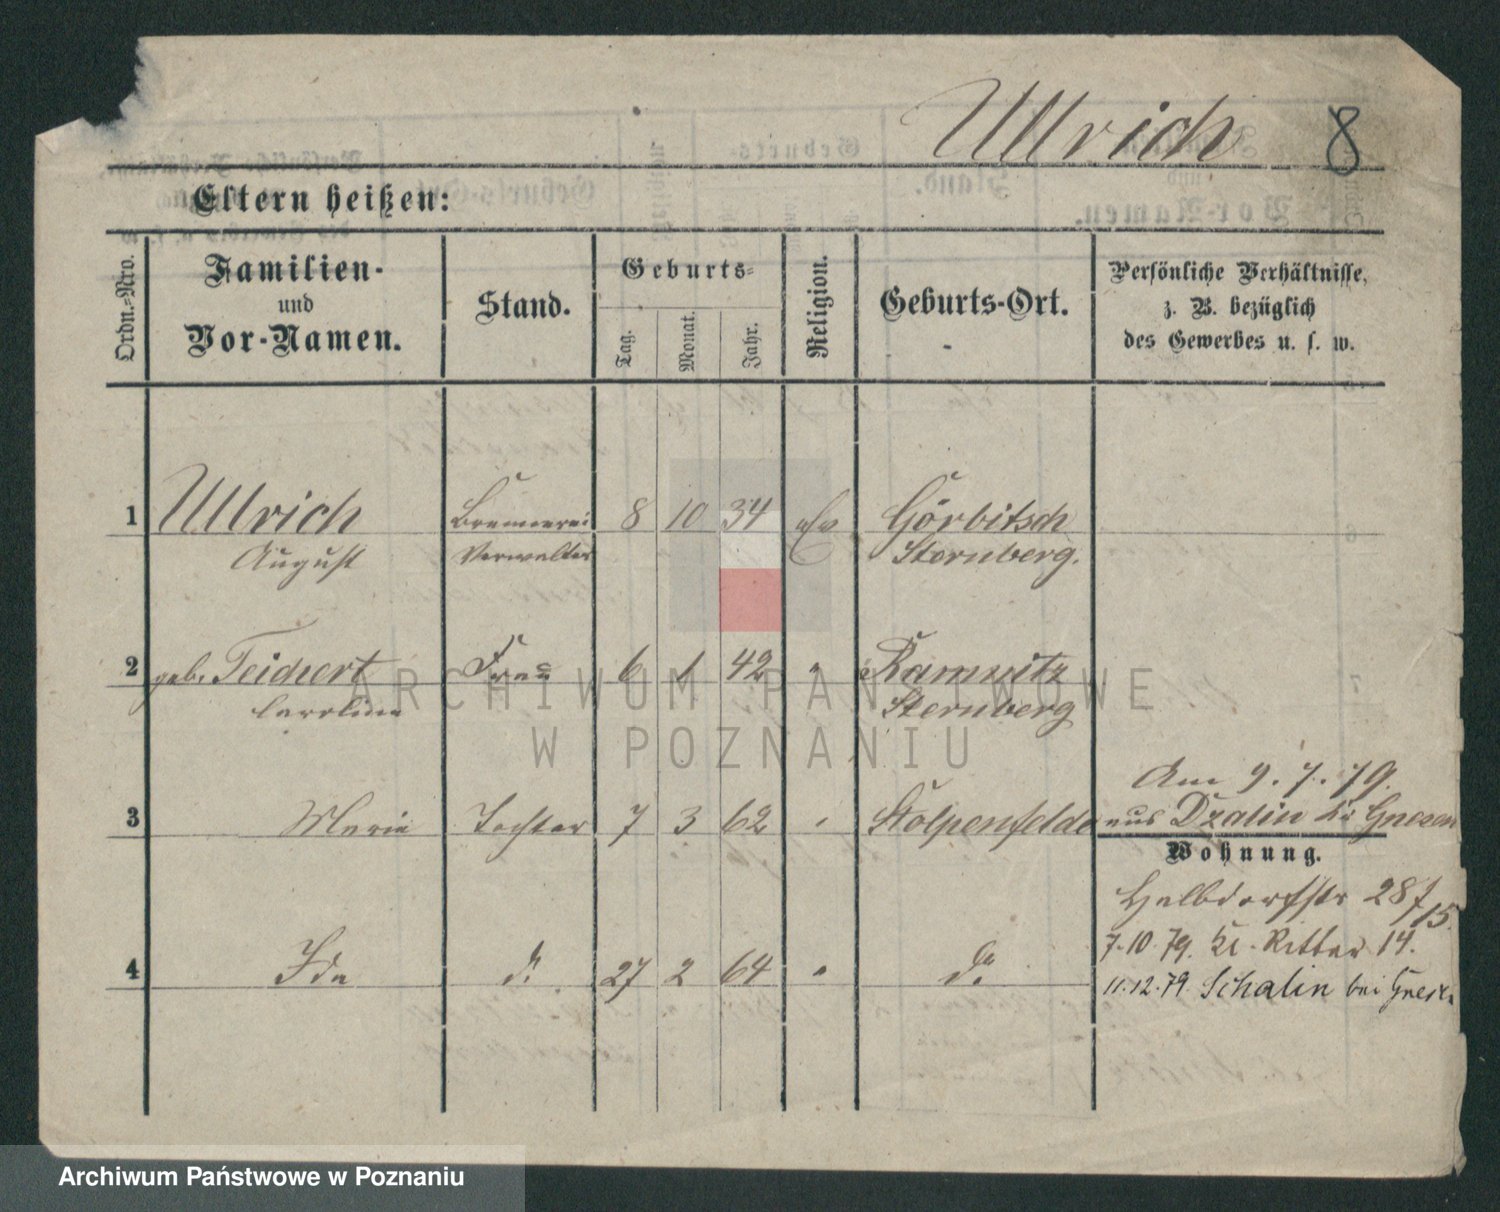 Ullrich 8
Eltern heißen:
Ordn.-Nro.
Familien-
und
Vor-Namen.
Stand.
Geburts-
Tag.
Monat.
Jahr.
Religion.
Geburts-Ort.
Persönliche Verhältnisse,
z. B. bezüglich
des Gewerbes u. s. w.
1 Ullrich Brennerei 8 10 34 Ev Görbitsch
August Verwalter Sternberg.
2 geb. Teichert Frau 6 1 42 " 
Caroline Sternberg
Am 9.7.79.
3 Marie Tochter 7 3 62 " Stolpenfelde aus Dzalin bei Gnesen
Wohnung.
Halbdorfstr 28/15.
7.10.79. Kl. Ritter 14.
4 Ida do. 27 2 64 " do.
11.12.79 Schalin bei Gnesen
ARCHIWUM PAŃSTWOWE
W POZNANIU
Archiwum Państwowe w Poznaniu